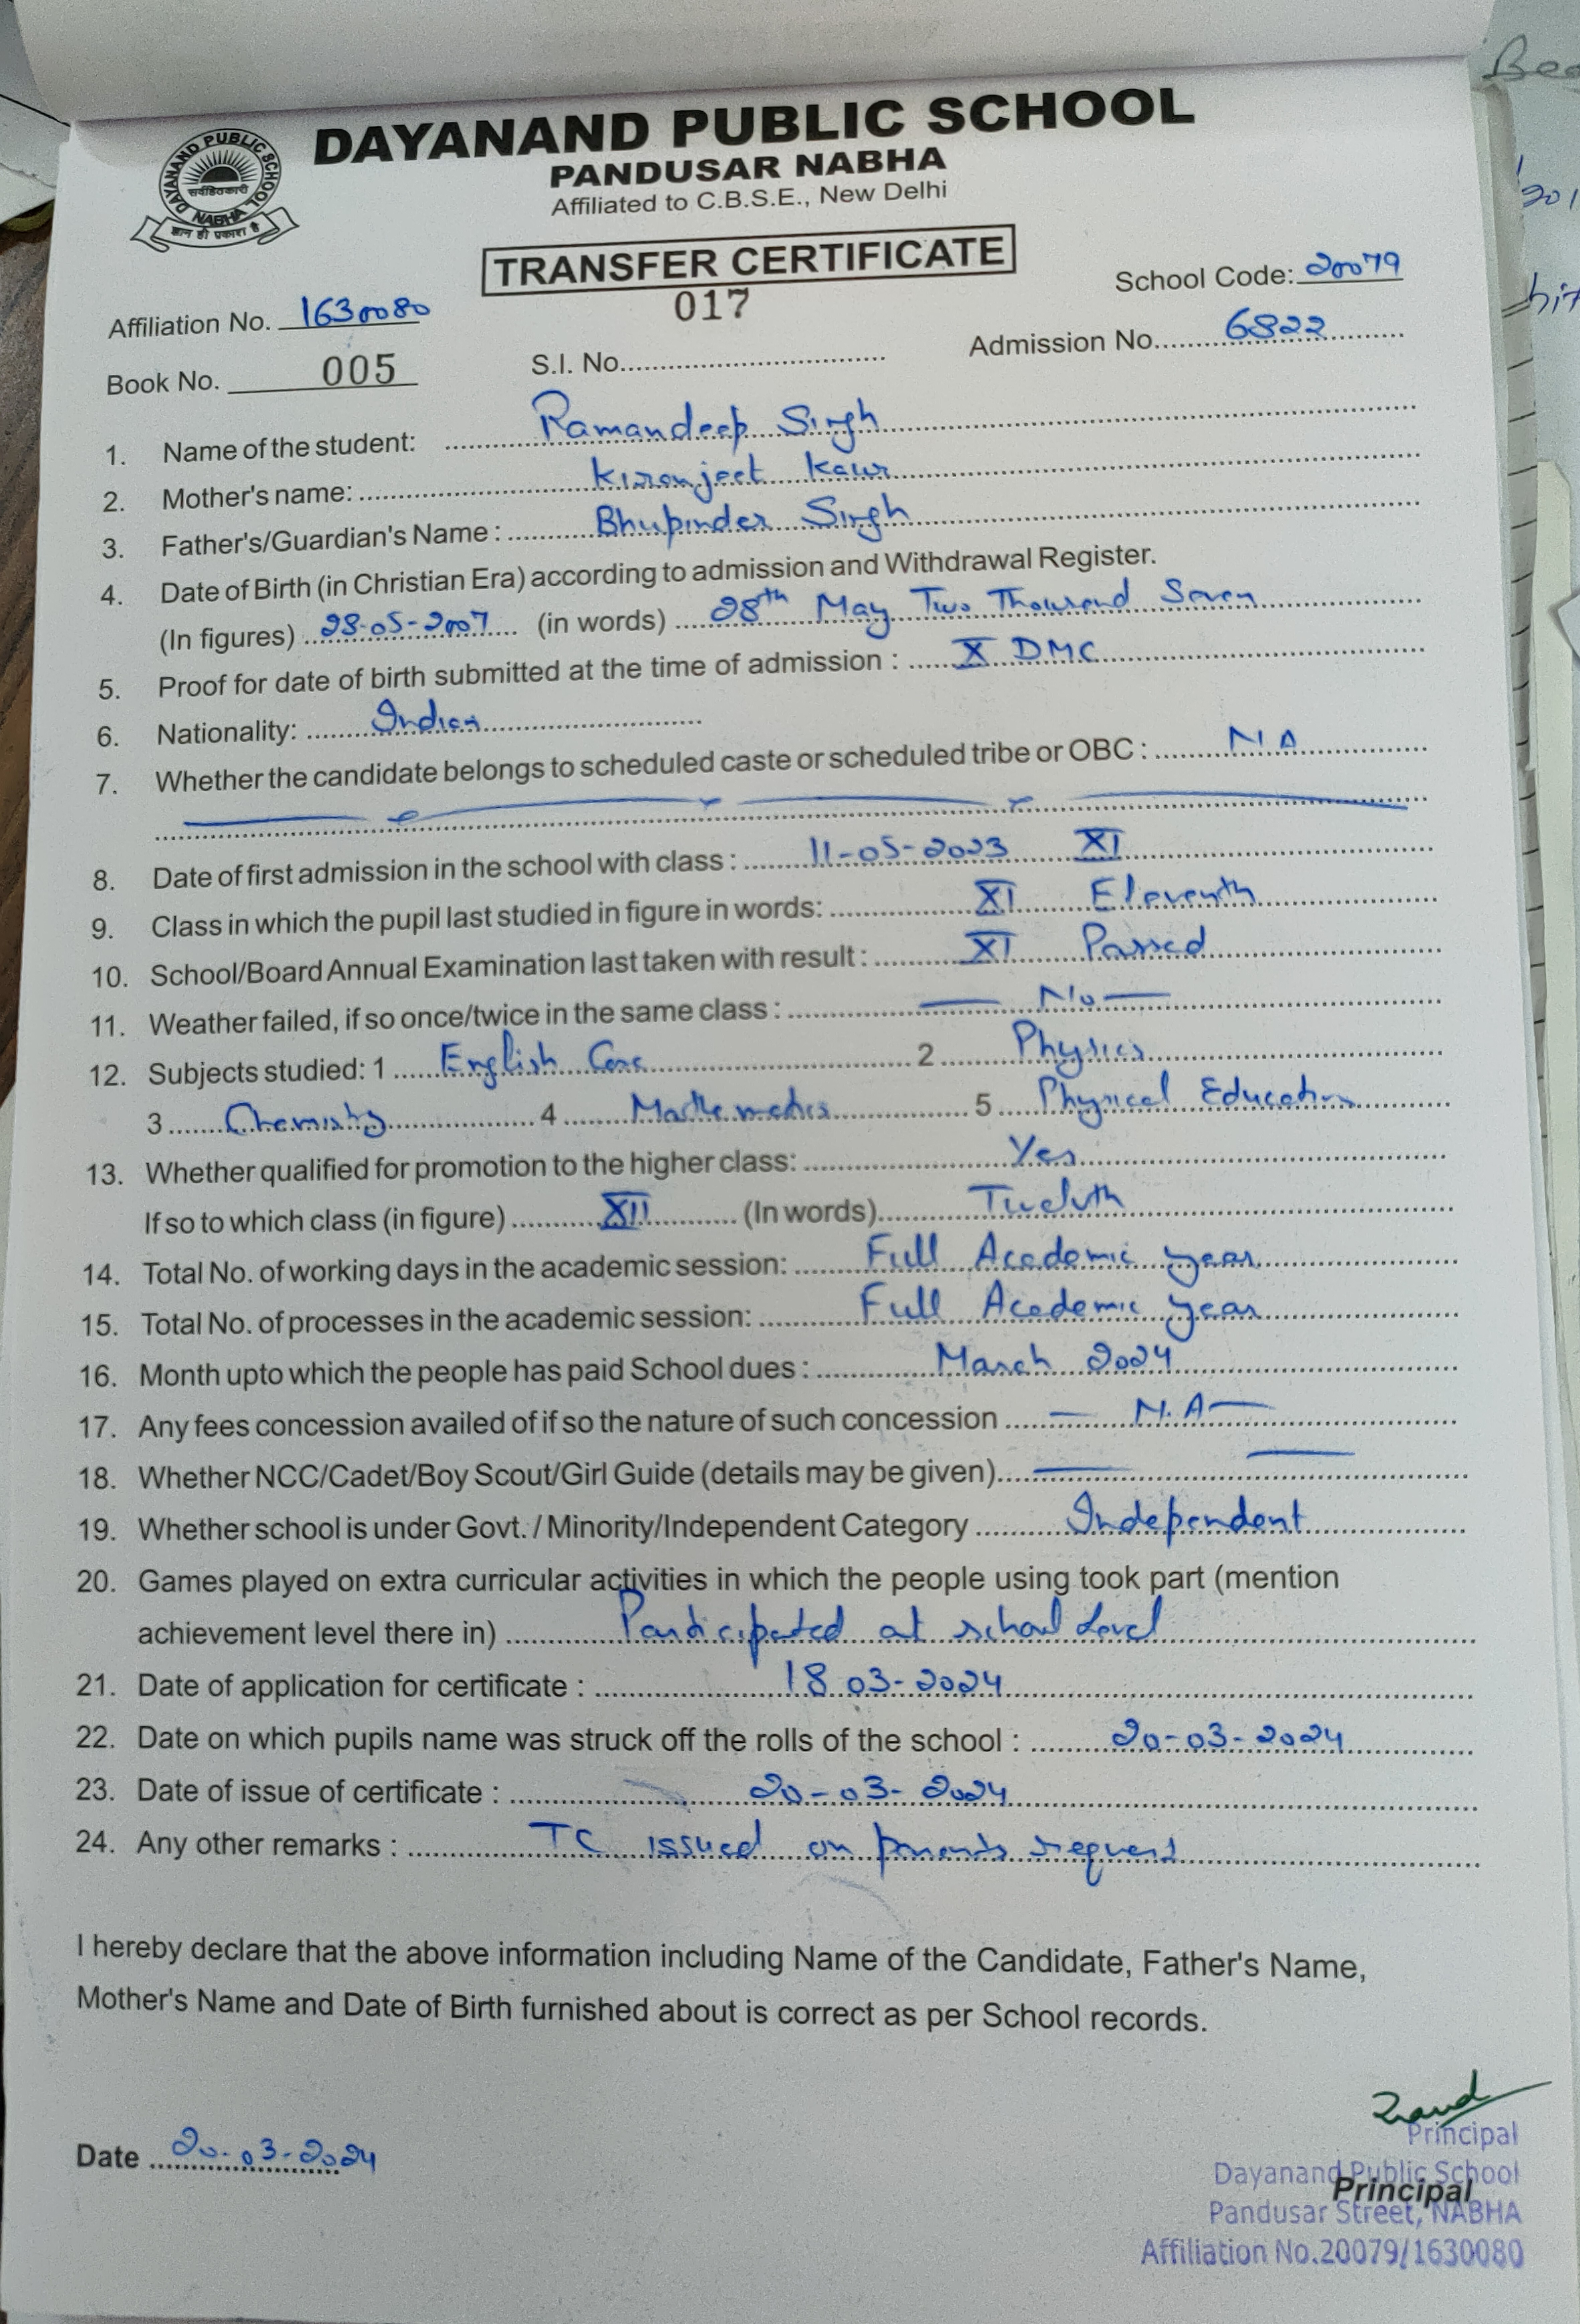 DAYANAND PUBLIC SCHOOL
PANDUSAR NABHA
Affiliated to C.B.S.E., New Delhi
DAYANAND PUBLIC SCHOOL
सर्वहितकारी
NABHA
ज्ञान ही प्रकाश है
TRANSFER CERTIFICATE
017
School Code: 20079
Affiliation No. 1630080
Admission No. 6822
Book No. 005 S.I. No.
1. Name of the student: Ramandeep Singh
2. Mother's name: Kiranjeet Kaur
3. Father's/Guardian's Name : Bhupinder Singh
4. Date of Birth (in Christian Era) according to admission and Withdrawal Register.
(In figures) 28-05-2007 (in words) 28th May Two Thousand Seven
5. Proof for date of birth submitted at the time of admission : X DMC
6. Nationality: Indian
7. Whether the candidate belongs to scheduled caste or scheduled tribe or OBC : NA
8. Date of first admission in the school with class : 11-05-2023 XI
9. Class in which the pupil last studied in figure in words: XI Eleventh
10. School/Board Annual Examination last taken with result : XI Passed
11. Weather failed, if so once/twice in the same class : No
12. Subjects studied: 1 English Core 2 Physics
3 Chemistry 4 Mathematics 5 Physical Education
13. Whether qualified for promotion to the higher class: Yes
If so to which class (in figure) XII (In words) Twelvth
14. Total No. of working days in the academic session: Full Academic year
15. Total No. of processes in the academic session: Full Academic year
16. Month upto which the people has paid School dues : March 2024
17. Any fees concession availed of if so the nature of such concession N.A
18. Whether NCC/Cadet/Boy Scout/Girl Guide (details may be given)
19. Whether school is under Govt. / Minority/Independent Category Independent
20. Games played on extra curricular activities in which the people using took part (mention
achievement level there in) Participated at school Level
21. Date of application for certificate : 18 03-2024
22. Date on which pupils name was struck off the rolls of the school : 20-03-2024
23. Date of issue of certificate : 20-03-2024
24. Any other remarks : TC issued on parents request
I hereby declare that the above information including Name of the Candidate, Father's Name,
Mother's Name and Date of Birth furnished about is correct as per School records.
Date 20-03-2024
Principal
Dayanand Public School
Principal
Pandusar Street, NABHA
Affiliation No.20079/1630080